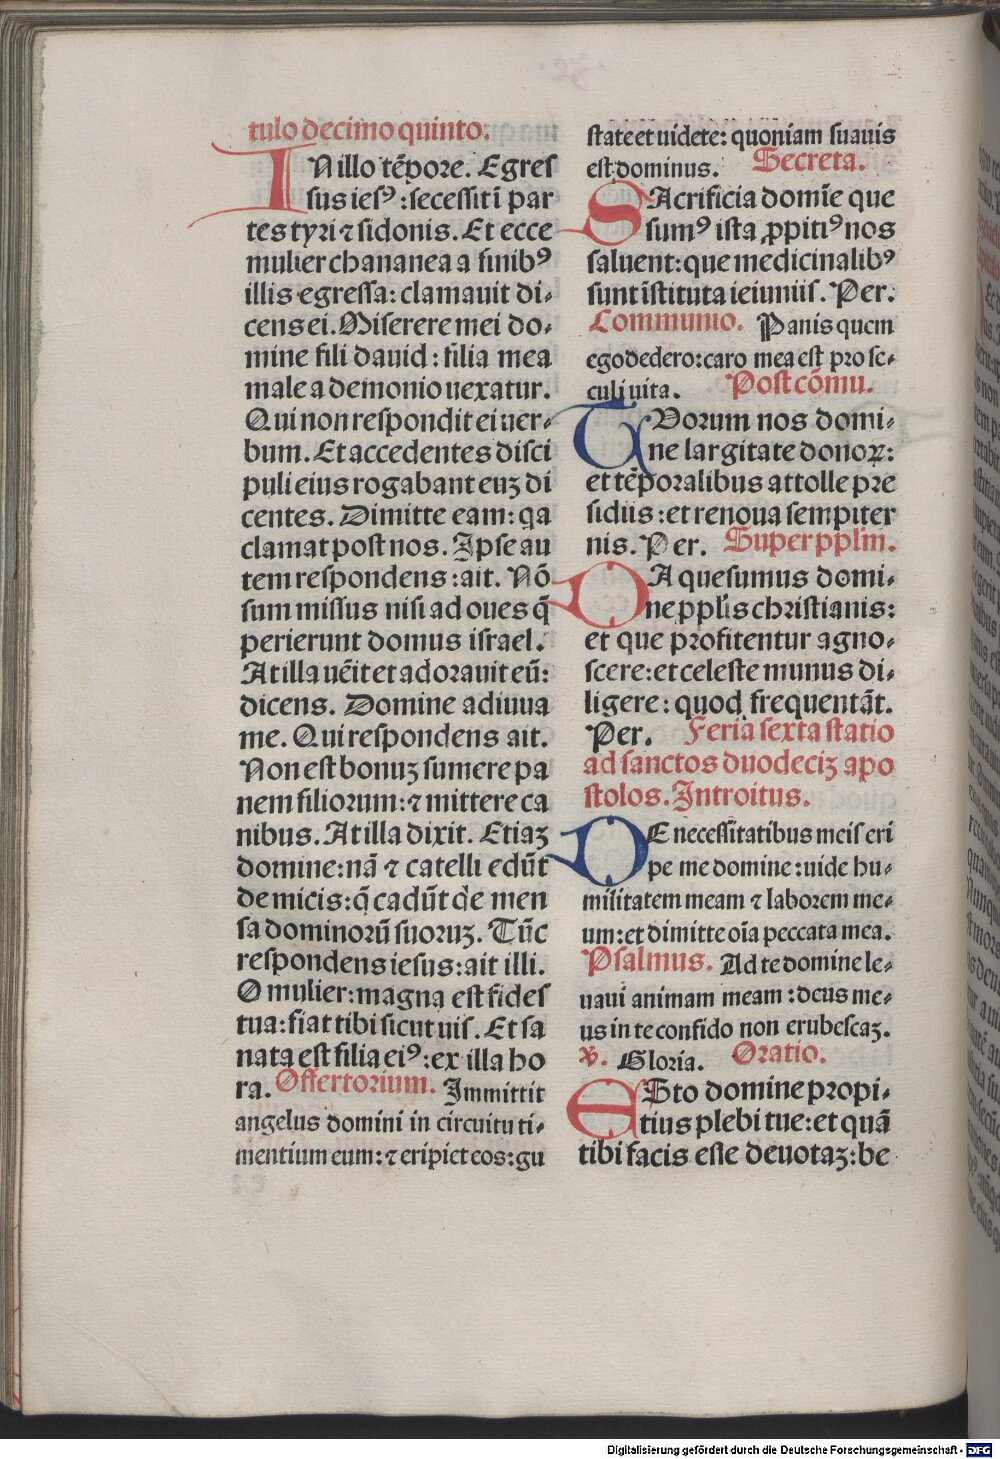 tulo decimo quinto.
IN illo tēpore. Egres
sus iesꝰ: secessit ī par
tes tyri ⁊ sidonis. Et ecce
mulier chananea a finibꝰ
illis egressa: clamauit di-
cens ei. Miserere mei do-
mine fili dauid: filia mea
male a demonio uexatur.
Qui non respondit ei uer-
bum. Et accedentes disci
puli eius rogabant euꝫ di
centes. Dimitte eam: qa
clamat post nos. Ipse au
tem respondens: ait. Nō
sum missus nisi ad oues q̄
perierunt domus israel.
At illa uēit et adorauit eū:
dicens. Domine adiuua
me. Qui respondens ait.
Non est bonuꝫ sumere pa
nem filiorum: ⁊ mittere ca
nibus. At illa dixit. Etiaꝫ
domine: nā ⁊ catelli edūt
de micis: q̄ cadūt de men
sa dominorū suoruꝫ. Tūc
respondens iesus: ait illi.
O mulier: magna est fides
tua: fiat tibi sicut uis. Et sa
nata est filia eiꝰ: ex illa ho
ra. Offertorium. Immittit
angelus domini in circuitu ti-
mentium eum: ⁊ eripiet eos: gu
state et uidete: quoniam suauis
est dominus. Secreta.
SAcrificia domīe que
sumꝰ ista ꝓpitiꝰ nos
saluent: que medicinalibꝰ
sunt īstituta ieiuniis. Per.
Communio. Panis quem
ego dedero: caro mea est pro se-
culi uita. Post cōmu.
TUorum nos domi-
ne largitate donoꝝ:
et tēporalibus attolle pre
sidiis: et renoua sempiter
nis. Per. Super pplm̄.
DA quesumus domi-
ne pplis christianis:
et que profitentur agno-
scere: et celeste munus di-
ligere: quod frequentāt.
Per. Feria sexta statio
ad sanctos duodeciꝫ apo
stolos. Introitus.
DE necessitatibus meis eri
pe me domine: uide hu-
militatem meam ⁊ laborem me-
um: et dimitte oīa peccata mea.
Psalmus. Ad te domine le-
uaui animam meam: deus me-
us in te confido non erubescaꝫ.
℣. Gloria. Oratio.
ESto domine propi-
tius plebi tue: et quā
tibi facis esse deuotaꝫ: be
Digitalisierung gefördert durch die Deutsche Forschungsgemeinschaft - DFG